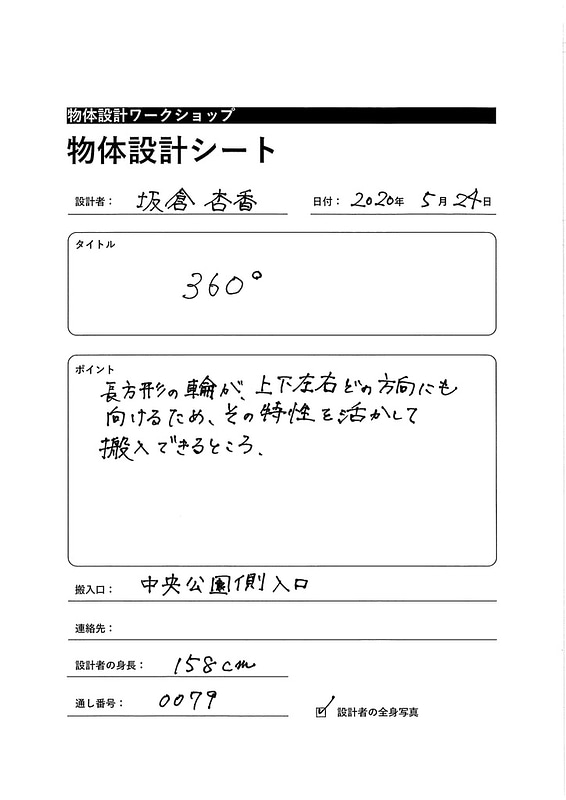 物体設計ワークショップ
物体設計シート
設計者： 坂倉 杏香 日付： 2020年 5月24日
タイトル
360°
ポイント
長方形の輪が、上下左右どの方向にも
向けるため、その特性を活かして
搬入できるところ.
搬入口： 中央公園側入口
連絡先：
設計者の身長： 158cm
通し番号： 0079
☑ 設計者の全身写真